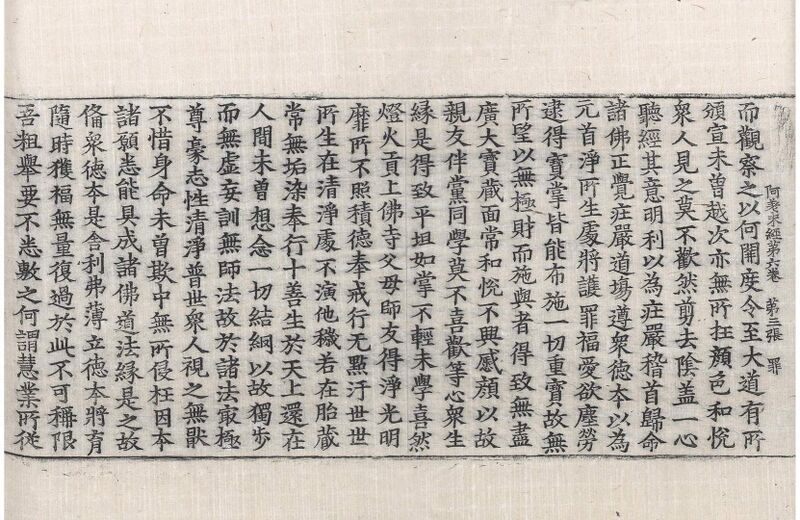 而觀察之以何開度令至大道有所
頒宣未曾越次亦無所枉顏色和悅
衆人見之莫不歡然剪去陰盖一心
聽經其意明利以為莊嚴稽首歸命
諸佛正覺莊嚴道塲遵衆德本以為
元首淨所生處將護罪福愛欲塵勞
逮得寶掌皆能布施一切重寶故無
所望以無極財而施與者得致無盡
廣大寶藏面常和悅不興慼顏以故
親友伴黨同學莫不喜歡等心衆生
縁是得致平坦如掌不輕未學喜然
燈火貢上佛寺父母師友得淨光明
靡所不照積德奉戒行無點汙世世
所生在清淨處不演他穢若在胎藏
常無垢染奉行十善生於天上還在
人間未曾想念一切結網以故獨步
而無虛妄訓無師法故於諸法㝡極
尊豪志性清淨普世衆人視之無猒
不惜身命未曾欺中無所侵枉因本
諸願悉能具成諸佛道法縁是之故
脩衆德本是舍利弗薄立德本將育
隨時獲福無量復過於此不可稱限
吾粗舉要不悉數之何謂慧業所從
阿差末經第六卷 第三張 罪